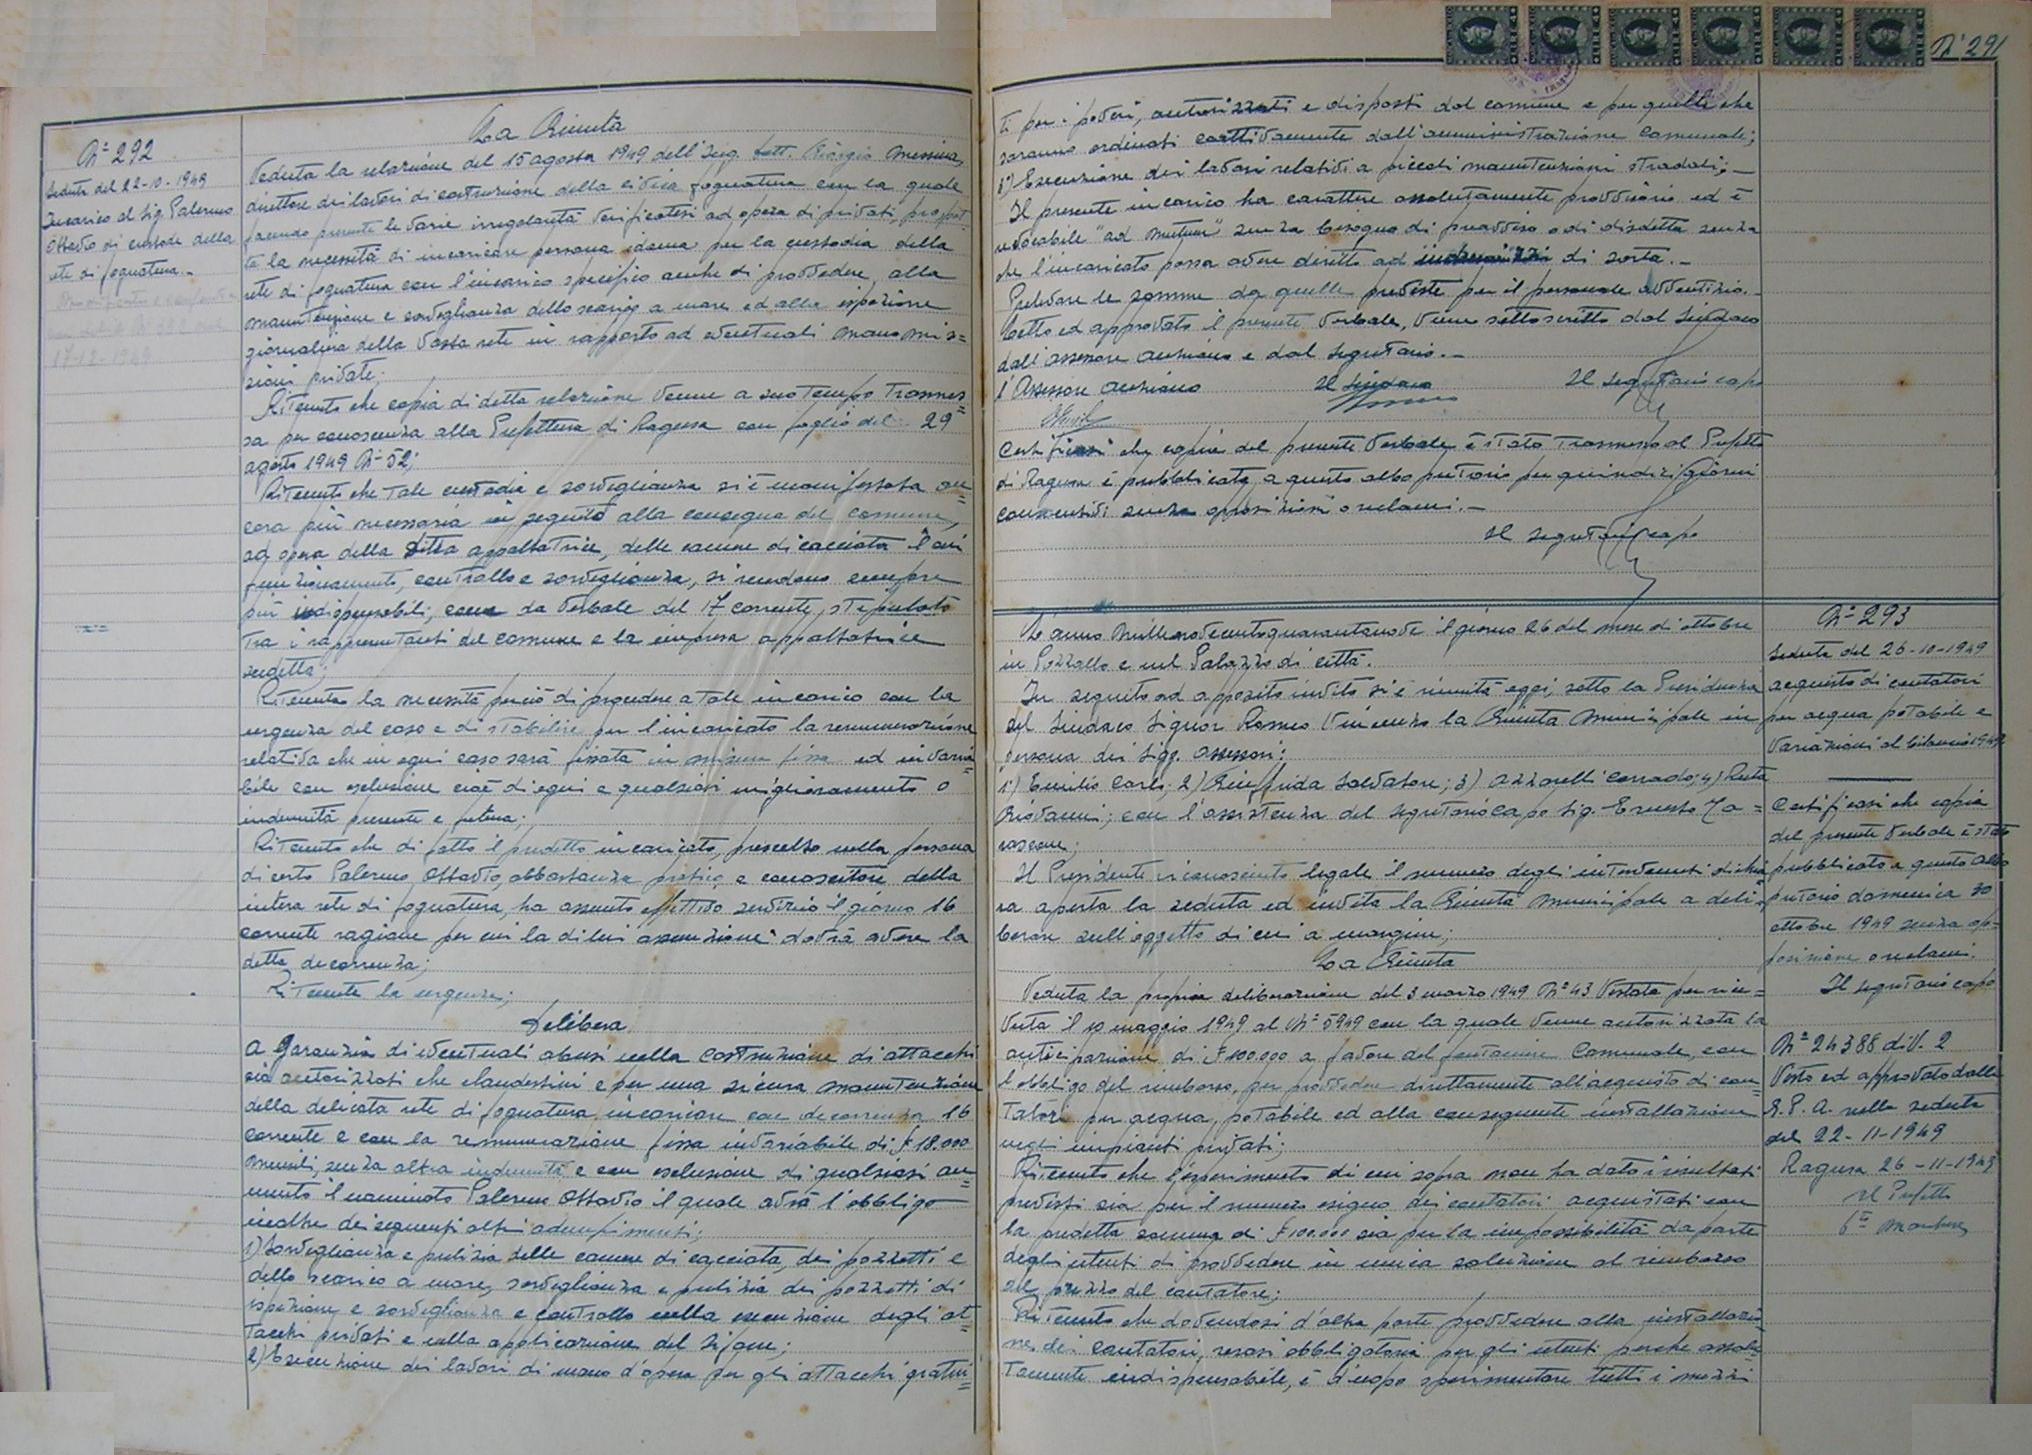 N° 292
Seduta del 22-10-1949
Incarico al sig. Palermo
Ottavio di custode della
rete di fognatura.-
17-12-1949
La Giunta
Veduta la relazione del 15 agosto 1949 dell'Ing. Dott. Giorgio Messina,
direttore dei lavori di costruzione della civica fognatura con la quale
facendo presente le varie irregolarità verificatesi ad opera di privati, prospet=
ta la necessità di incaricare persona idonea per la custodia della
rete di fognatura con l'incarico specifico anche di provvedere alla
manutenzione e sorveglianza dello scarico a mare ed alla ispezione
giornaliera della vasta rete in rapporto ad eventuali manomis=
sioni private;
Ritenuto che copia di detta relazione venne a suo tempo trasmes=
sa per conoscenza alla Prefettura di Ragusa con foglio del 29
agosto 1949 N° 52;
Ritenuto che tale custodia e sorveglianza si è manifestata an=
cora più necessaria in seguito alla consegna del Comune,
ad opera della ditta appaltatrice, delle camere di cacciata il cui
funzionamento, controllo e sorveglianza, si rendono sempre
più indispensabili, come da verbale del 17 corrente, stipulato
tra i rappresentanti del Comune e la impresa appaltatrice
sudetta;
Ritenuta la necessità perciò di procedere a tale incarico con la
urgenza del caso e di stabilire per l'incaricato la remunerazione
relativa che in ogni caso sarà fissata in misura fissa ed invaria=
bile con esclusione cioè di ogni e qualsiasi miglioramento o
indennità presente e futura;
Ritenuto che di fatto il predetto incaricato, prescelto nella persona
di certo Palermo Ottavio, abbastanza pratico e conoscitore della
intera rete di fognatura, ha assunto effettivo servizio il giorno 16
corrente ragione per cui la di lui assunzione dovrà avere la
detta decorrenza;
Ritenuta la urgenza;
Delibera
A garanzia di eventuali abusi nella costruzione di attacchi
sia autorizzati che clandestini e per una sicura manutenzione
della delicata rete di fognatura incaricare con decorrenza 16
corrente e con la remunerazione fissa invariabile di £ 18.000
mensili, senza altra indennità e con esclusione di qualsiasi au=
mento il nominato Palermo Ottavio il quale avrà l'obbligo
inoltre dei seguenti altri adempimenti:
1) Sorveglianza e pulizia delle camere di cacciata, dei pozzetti e
dello scarico a mare, sorveglianza e pulizia dei pozzetti di
ispezione e sorveglianza e controllo nella esecuzione degli at=
tacchi privati e nella applicazione del sifone;
2) Esecuzione dei lavori di mano d'opera per gli attacchi gratui=
N° 291
ti per i poveri, autorizzati e disposti dal comune e per quelli che
saranno ordinati dall'amministrazione comunale;
3) Esecuzione dei lavori relativi a piccoli manutenzioni stradali;-
Il presente incarico ha carattere assolutamente provvisorio ed è
revocabile "ad nutum" senza bisogno di preavviso o di disdetta senza
che l'incaricato possa avere diritto ad indennizzi di sorta.-
Prelevare le somme da quelle previste per il personale avventizio.-
Letto ed approvato il presente verbale, viene sottoscritto dal Sindaco
dall'assessore anziano e dal segretario.-
L'Assessore anziano Il Sindaco Il segretario capo
Certificasi che copia del presente verbale è stato trasmesso al Prefetto
di Ragusa è pubblicato a questo albo pretorio per quindici giorni
consecutivi senza opposizioni o reclami.-
Il segretario capo
L'anno millenovecentoquarantanove il giorno 26 del mese di ottobre
in Pozzallo e nel Palazzo di città.
In seguito ad apposito invito si è riunita oggi, sotto la Presidenza
del Sindaco Signor Romeo Vincenzo la Giunta Municipale in
persona dei Sigg. Assessori:
1°) Emilio Carlo; 2) Giuffrida Salvatore; 3) Azzarelli Corrado; 4) Ruta
Giovanni; con l'assistenza del segretario capo sig. Ernesto Ta=
rascone;
Il Presidente riconosciuto legale il numero degli intervenuti dichia=
ra aperta la seduta ed invita la Giunta Municipale a deli=
berare sull'oggetto di cui a margine;
La Giunta
Veduta la propria deliberazione del 3 marzo 1949 N° 43 vistata per rice=
vuta il 10 maggio 1949 al N° 5949 con la quale venne autorizzata la
anticipazione di £ 100.000 a favore del fontaniere Comunale, con
l'obbligo del rimborso, per provvedere direttamente all'acquisto di con=
tatori per acqua potabile ed alla conseguente installazione
negli impianti privati;
Ritenuto che l'esperimento di cui sopra non ha dato i risultati
previsti sia per il numero esiguo dei contatori acquistati con
la predetta somma di £ 100.000 sia per la impossibilità da parte
degli utenti di provvedere in unica soluzione al rimborso
del prezzo del contatore;
Ritenuto che dovendosi d'altra parte provvedere alla installazio=
ne dei contatori, resasi obbligatoria per gli utenti perchè assolu=
tamente indispensabile, è d'uopo sperimentare tutti i mezzi
N° 293
Seduta del 26-10-1949
acquisto di contatori
per acqua potabile e
variazioni al bilancio 1949
Certificasi che copia
del presente verbale è stato
pubblicato a questo albo
pretorio domenica 30
ottobre 1949 senza op=
posizione o reclami.
Il segretario capo
N° 24388 div. 2
Visto ed approvato dalla
G. P. A. nella seduta
del 22-11-1949
Ragusa 26-11-1949
Il Prefetto